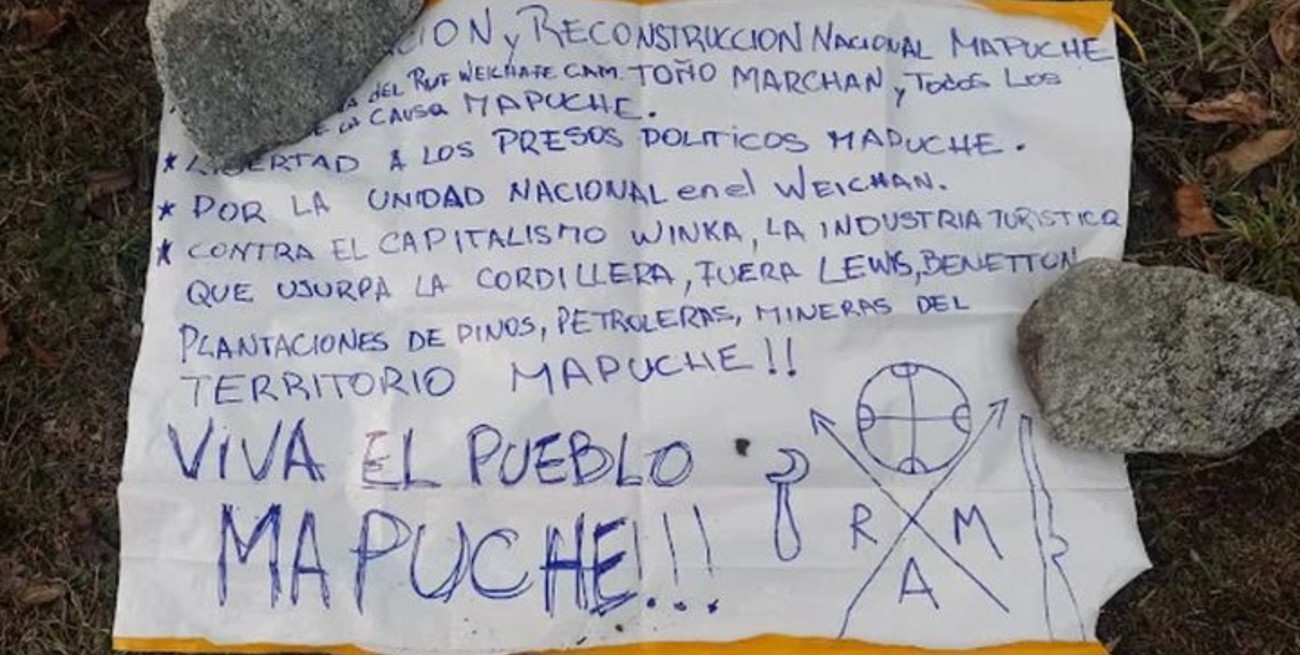 CION y RECONSTRUCCION NACIONAL MAPUCHE
DEL WEICHAFE CAM TOÑO MARCHAN, y Todos Los
LA CAUSA MAPUCHE.
* LIBERTAD A LOS PRESOS POLITICOS MAPUCHE.
* POR LA UNIDAD NACIONAL en el WEICHAN.
* CONTRA EL CAPITALISMO WINKA, LA INDUSTRIA TURISTICA
QUE USURPA LA CORDILLERA, FUERA LEWIS, BENETTON
PLANTACIONES DE PINOS, PETROLERAS, MINERAS DEL
TERRITORIO MAPUCHE!!
VIVA EL PUEBLO
MAPUCHE!!!
R M
A